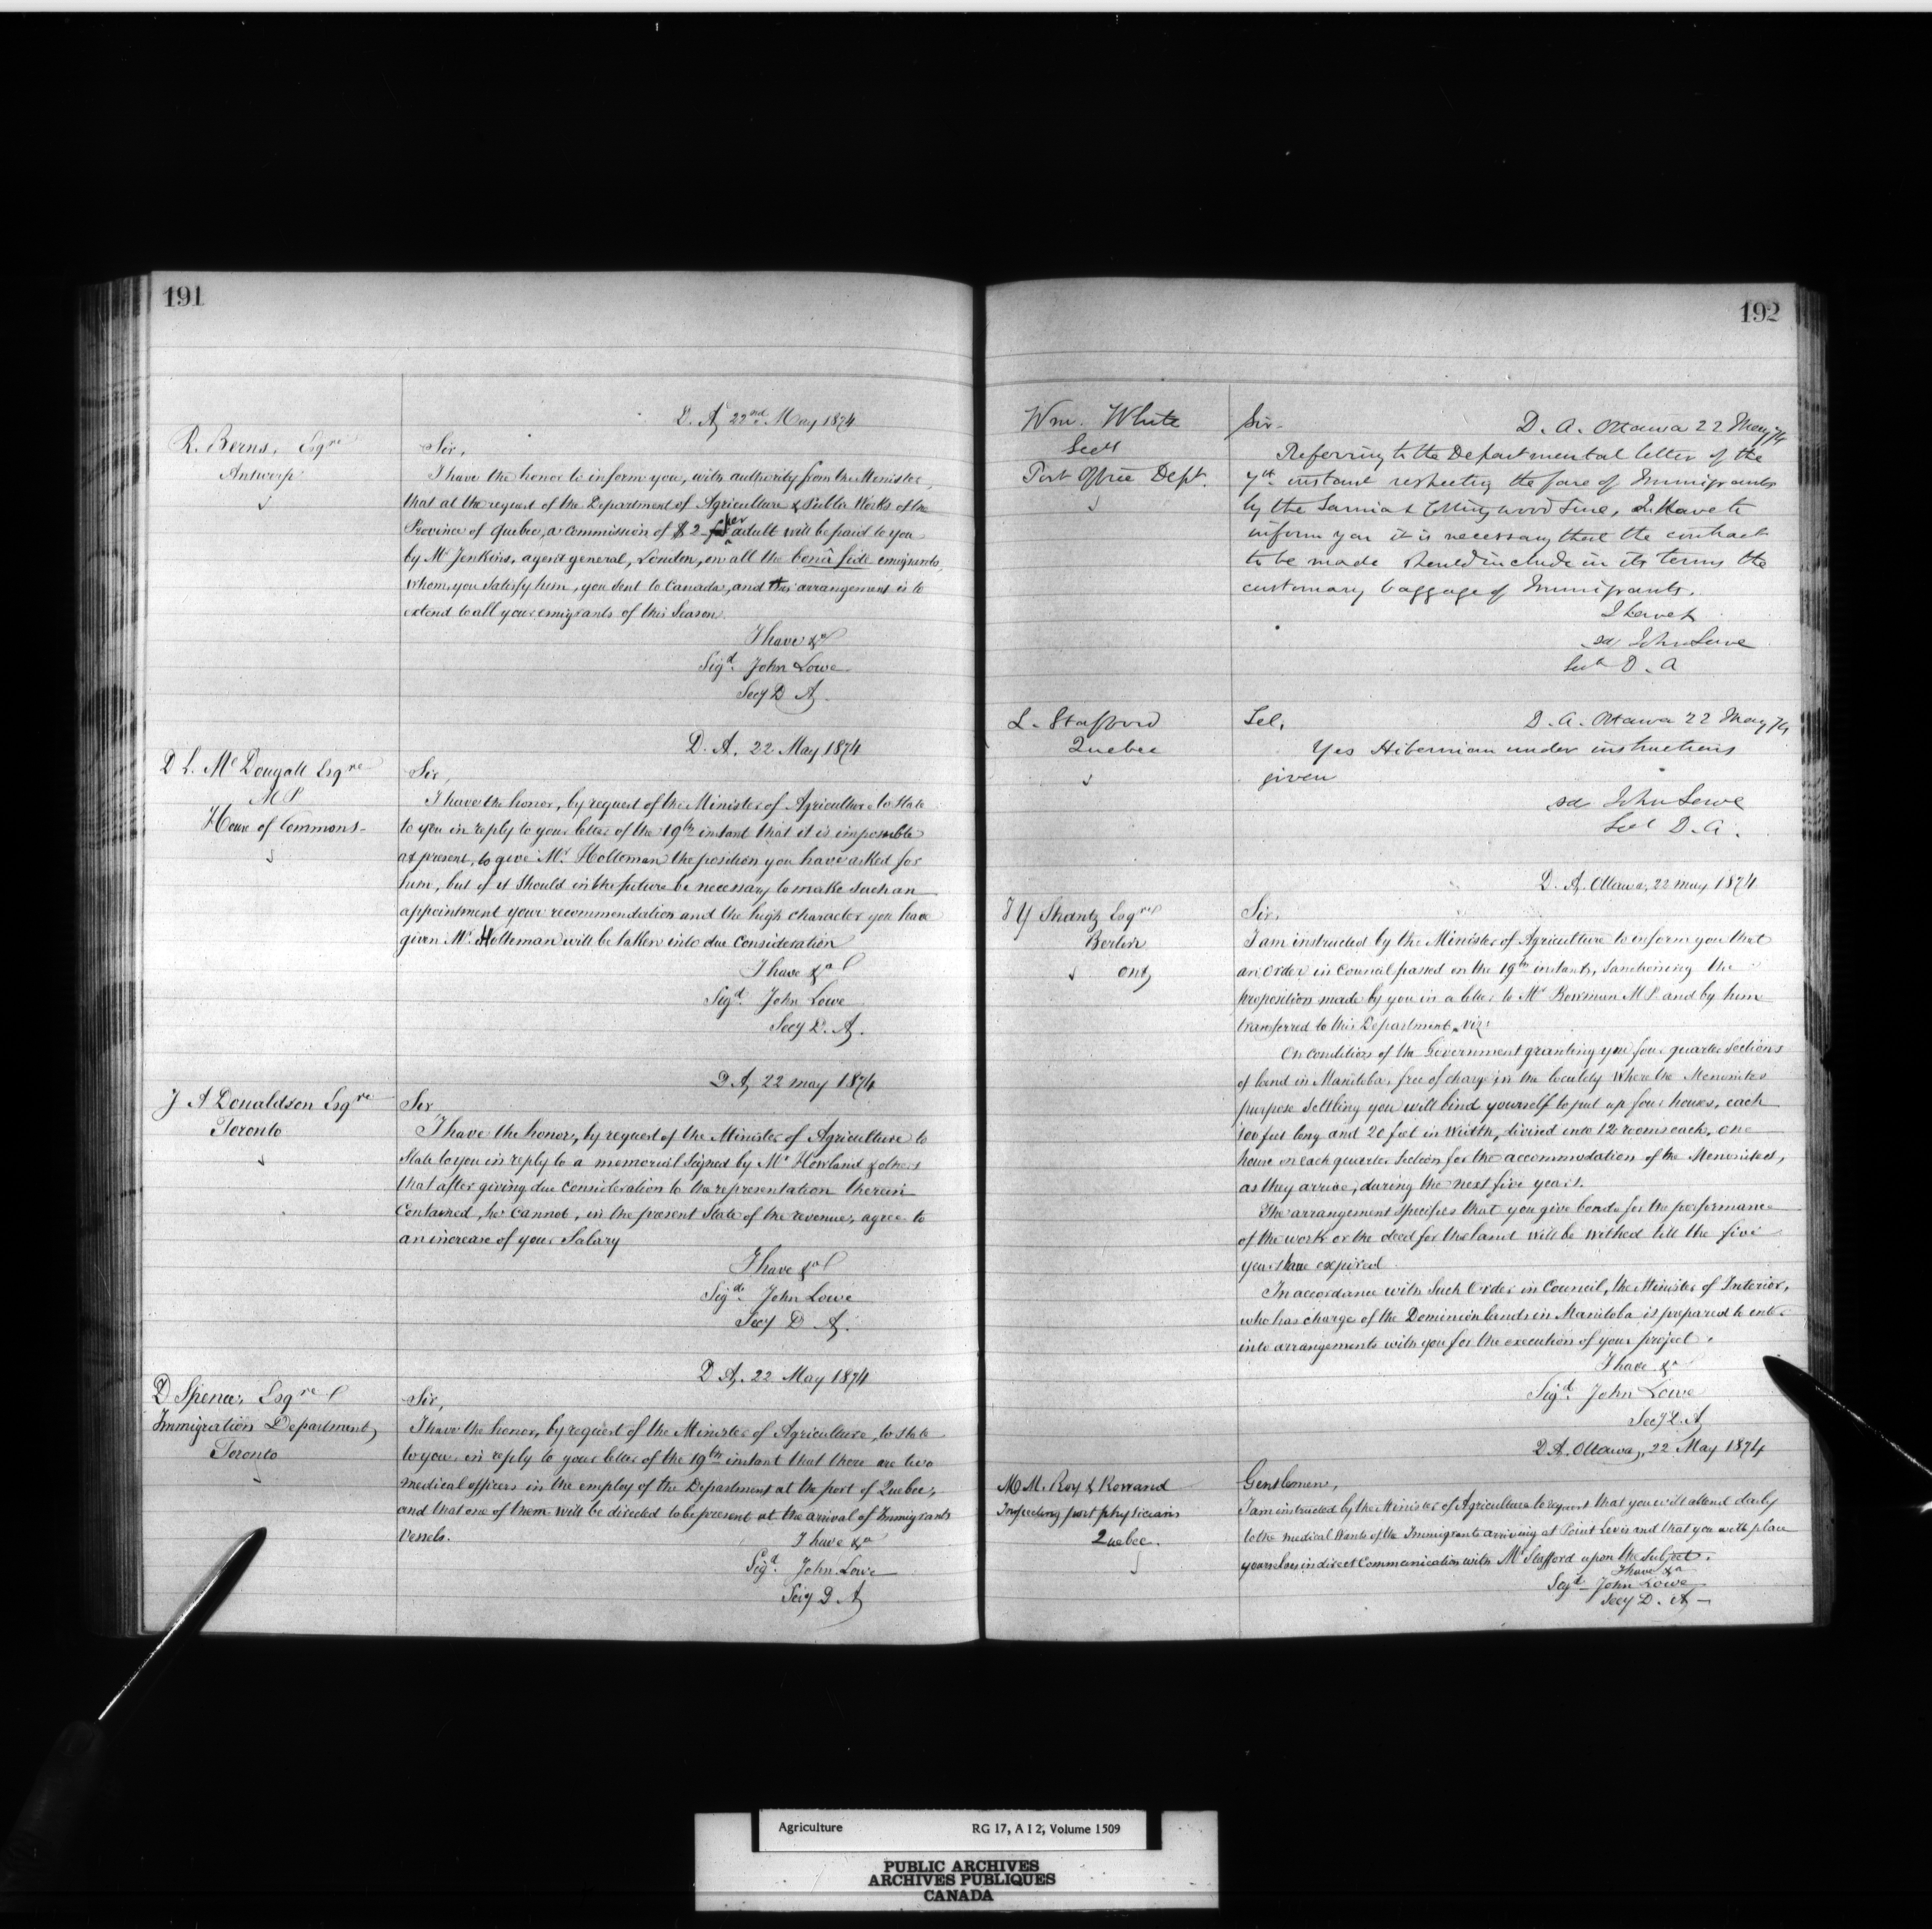 191
D. A, 22nd May 1874
R. Berns, Esqre
Antwerp
Sir,
I have the honor to inform you, with authority from the Minister,
that at the request of the Department of Agriculture & Public Works of the
Province of Quebec, a commission of $2 per adult will be paid to you
by Mr Jenkins, agent general, London, on all the bonâ fide emigrants,
whom you satisfy him, you sent to Canada, and this arrangement is to
extend to all your emigrants of this Season.
I have &a
Sigd. John Lowe
Secy D A.
D. A. 22 May 1874
D L. McDougall Esqre
M P
House of Commons-
Sir,
I have the honor, by request of the Minister of Agriculture to State
to you in reply to your letter of the 19th instant that it is impossible
at present, to give Mr. Holteman the position you have asked for
him, but if it should in the future be necessary to make such an
appointment your recommendation and the high character you have
given Mr. Holteman will be taken into due consideration
I have &a
Sigd. John Lowe
Secy D. A.
D A, 22 may 1874
J A Donaldson Esqre
Toronto
Sir
I have the honor, by request of the Minister of Agriculture to
State to you in reply to a memorial signed by Mr Howland & others
that after giving due consideration to the representation therein
contained, he cannot, in the present State of the revenue, agree to
an increase of your Salary
I have &a
Sigd. John Lowe
Secy D A.
D A. 22 May 1874
D Spence, Esqre
Immigration Department,
Toronto
Sir,
I have the honor, by request of the Minister of Agriculture, to state
to you in reply to your letter of the 19th instant that there are two
medical officers in the employ of the Department at the port of Quebec,
and that one of them will be directed to be present at the arrival of Immigrants
Vessels.
I have &a
Sigd. John Lowe
Secy D A
192
Wm. White
Secy
Post Office Dept.
Sir- D. A. Ottawa 22 May 74
Referring to the Departmental letter of the
7th instant respecting the fare of Immigrants
by the Sarnia & Collingwood Line, I have to
inform you it is necessary that the contract
to be made should include in its terms the
customary baggage of Immigrants.
I have &
sd John Lowe
Secy D. A
L. Stafford
Quebec
Tel. D. A. Ottawa 22 May 74
Yes Hibernian under instructions
given
sd John Lowe
Secy D. A.
D. A. Ottawa, 22 may 1874
J Y Shantz Esqre
Berlin
Ont,
Sir,
I am instructed by the Minister of Agriculture to inform you that
an Order in Council passed on the 19th instant, sanctioning the
proposition made by you in a letter to Mr Bowman M P. and by him
transferred to this Department, viz:
On condition of the Government granting you four quarter sections
of land in Manitoba, free of charge in the locality where the Menonites
purpose settling you will bind yourself to put up four houses, each
100 feet long and 20 feet in width, divided into 12 rooms each, one
house on each quarter section for the accommodation of the Menonites,
as they arrive, during the next five years.
The arrangement specifies that you give bonds for the performance
of the work or the deed for the land will be withed till the five
years have expired
In accordance with Such Order in Council, the Minister of Interior,
who has charge of the Dominion lands in Manitoba is prepared to enter
into arrangements with you for the execution of your project.
I have &a
Sigd. John Lowe
Secy D. A
D. A. Ottawa, 22 May 1874
M M. Roy & Rowand
Inspecting port physicians
Quebec.
Gentlemen,
I am instructed by the Minister of Agriculture to request that you will attend daily
to the medical wants of the Immigrants arriving at Point Levis and that you will place
yourselves in direct communication with Mr Stafford upon the subject.
I have &a
Sigd. John Lowe
Secy D. A -
Agriculture RG 17, A I 2, Volume 1509
PUBLIC ARCHIVES
ARCHIVES PUBLIQUES
CANADA